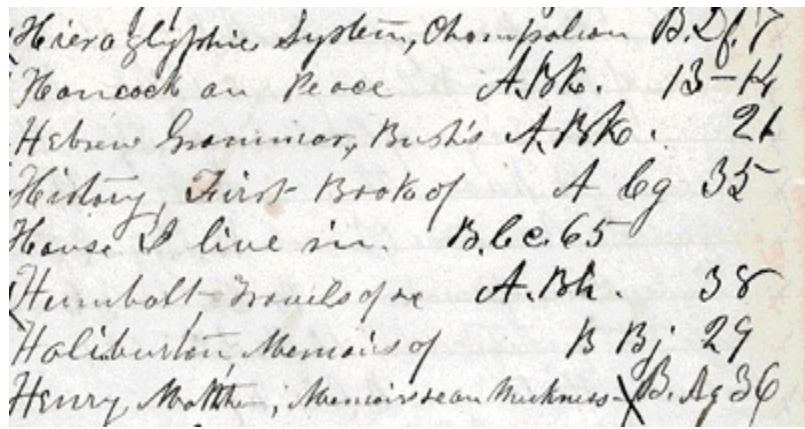 Hieroglyphic System, Champolion B.
Hancock on Peace A.Bk. 13-14
Hebrew Grammar, Bush's A.Bk. 21
History, First Book of A Cg 35
House I live in. B.Ce.65
Humbolt Travels of A.Bh. 38
Haliburton, Memoirs of B Bj 29
Henry Matthew, Memoirs on Meekness B. Ag 36